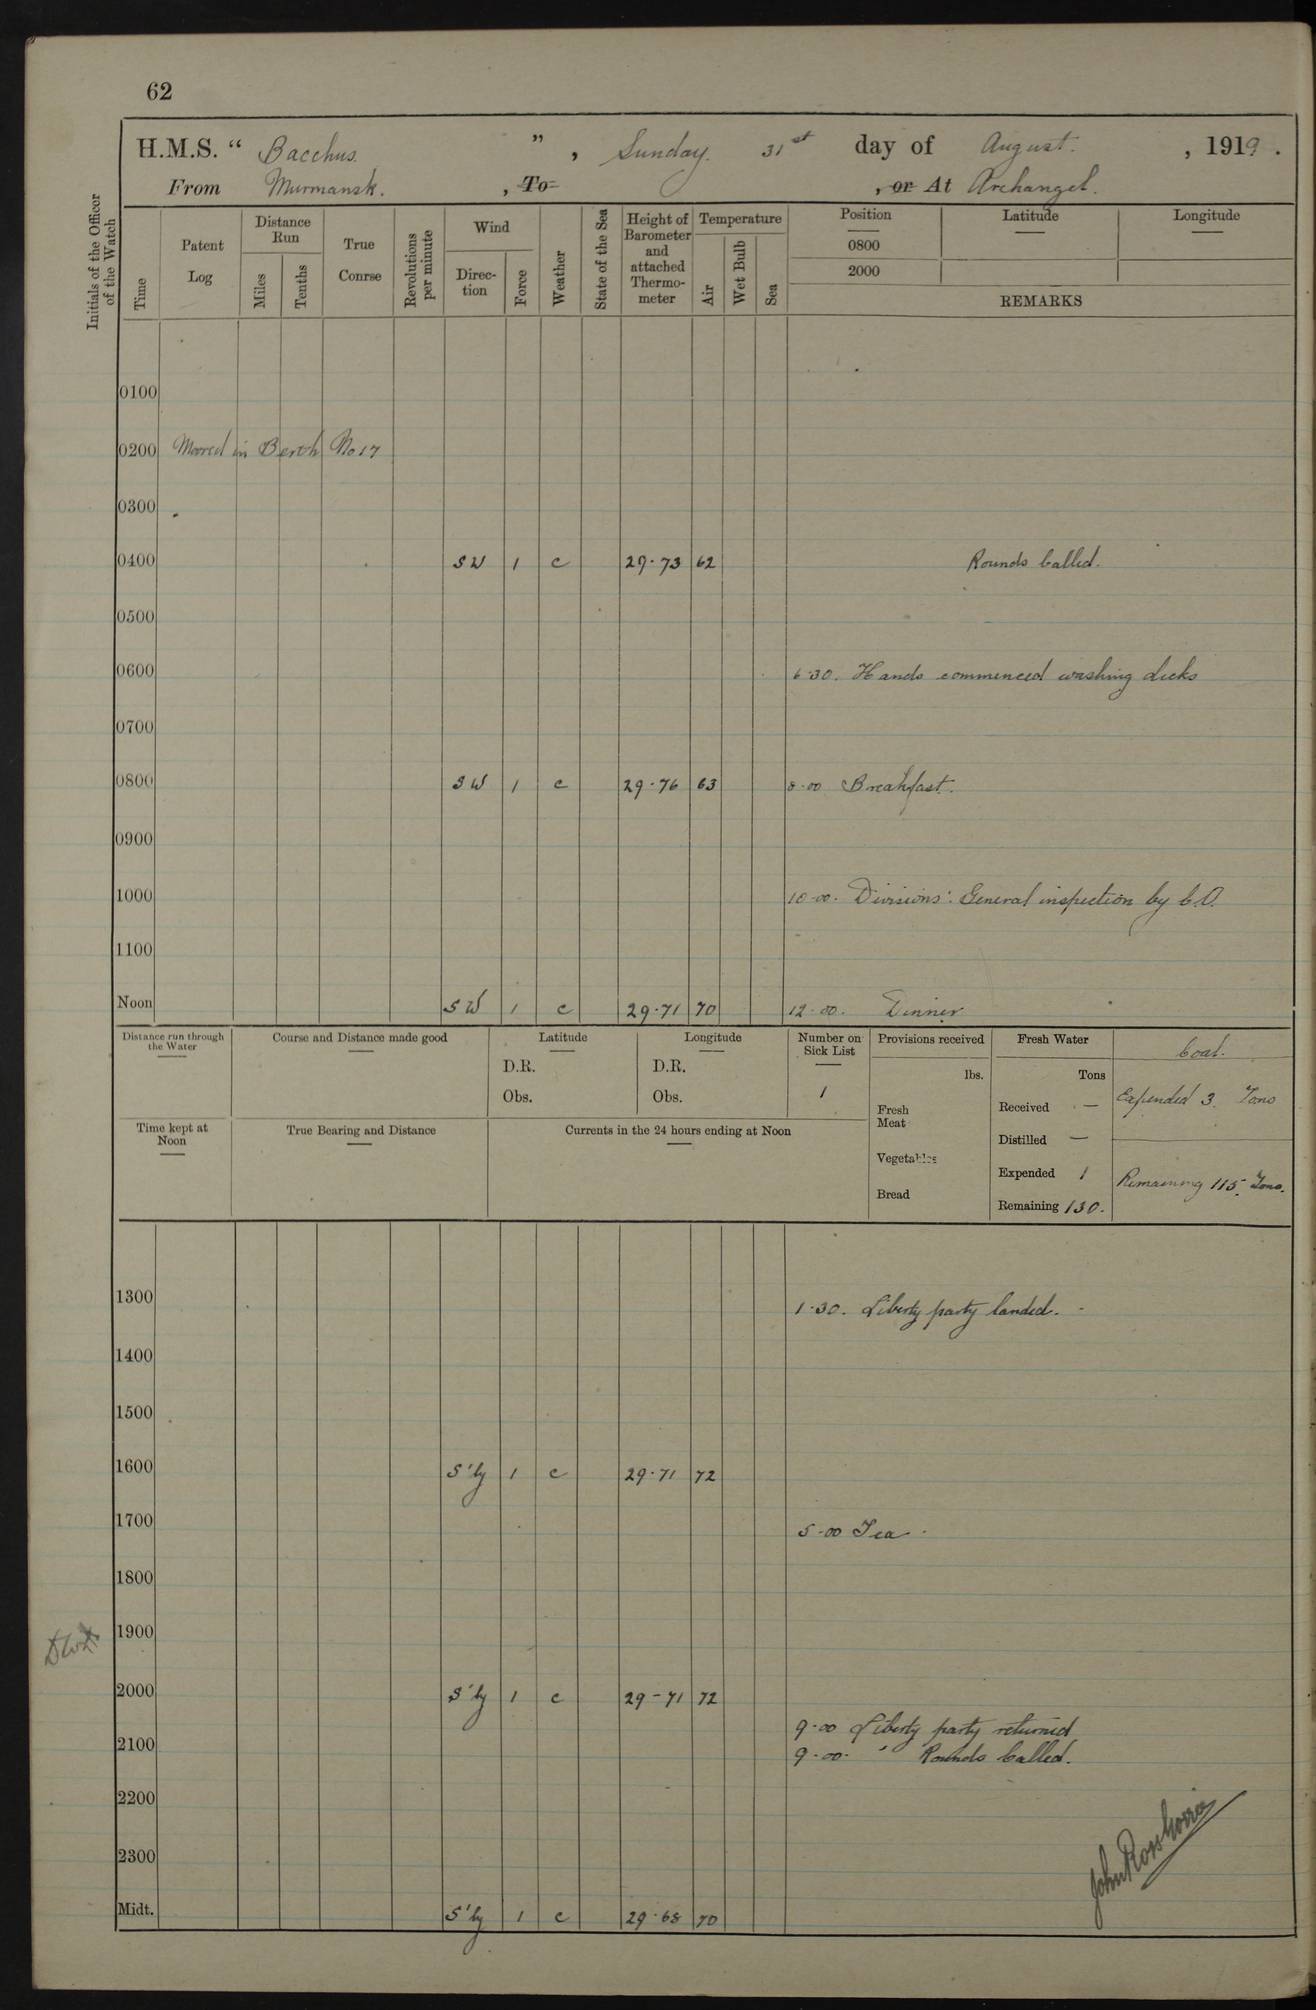 62
H.M.S. “ Bacchus. ” , Sunday. 31st day of August. , 1919.
From Murmansk. , To , or At Archangel.
Initials of the Officer of the Watch
Time
Patent Log
Distance Run
Miles
Tenths
True Conrse
Revolutions per minute
Wind
Direc-tion
Force
Weather
State of the Sea
Height of Barometer and attached Thermo-meter
Temperature
Air
Wet Bulb
Sea
Position
0800
2000
Latitude
Longitude
REMARKS
0100
0200 Moored in Berth No 17
0300
0400 SW 1 c 29.73 62 Rounds Called.
0500
0600 6.30. Hands commenced washing decks
0700
0800 SW 1 c 29.76 63 8.00 Breakfast.
0900
1000 10.00. Divisions: General inspection by C.O.
1100
Noon SW 1 c 29.71 70 12.00. Dinner
Distance run through the Water
Course and Distance made good
Latitude
D.R.
Obs.
Longitude
D.R.
Obs.
Number on Sick List
1
Provisions received
lbs.
Fresh Meat
Vegetables
Bread
Fresh Water
Tons
Received —
Distilled —
Expended 1
Remaining 130.
Coal.
Expended 3. Tons
Remaining 115. Tons.
Time kept at Noon
True Bearing and Distance
Currents in the 24 hours ending at Noon
1300 1.30. Liberty party landed.
1400
1500
1600 S'ly 1 c 29.71 72
1700 5.00 Tea
1800
1900
2000 S'ly 1 c 29-71 72
9.00 Liberty party returned
2100 9.00. " Rounds Called.
2200
2300
Midt. S'ly 1 c 29.68 70